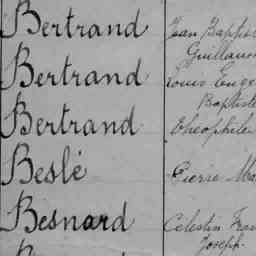 Bertrand Jean Baptis
Guillaum
Bertrand Louis Euge
Baptiste
Bertrand Théophile
Beslé Pierre Ma
Besnard Célestin Fran
Joseph